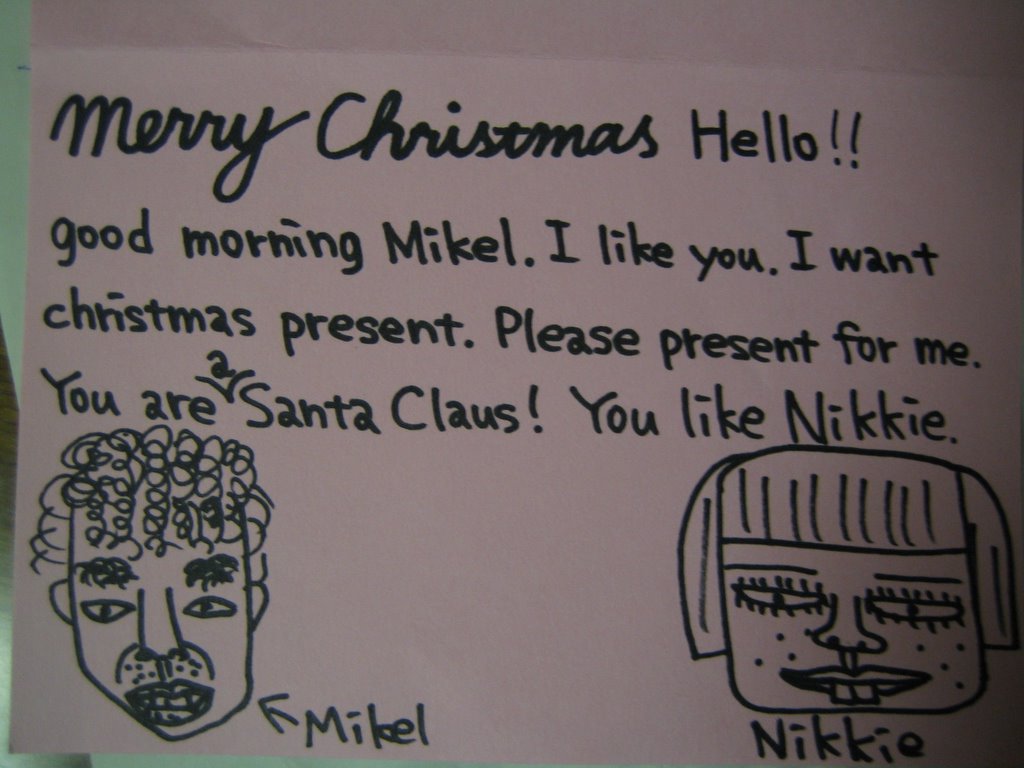 Merry Christmas Hello!!
good morning Mikel. I like you. I want
christmas present. Please present for me.
You are a Santa Claus! You like Nikkie.
Mikel
Nikkie